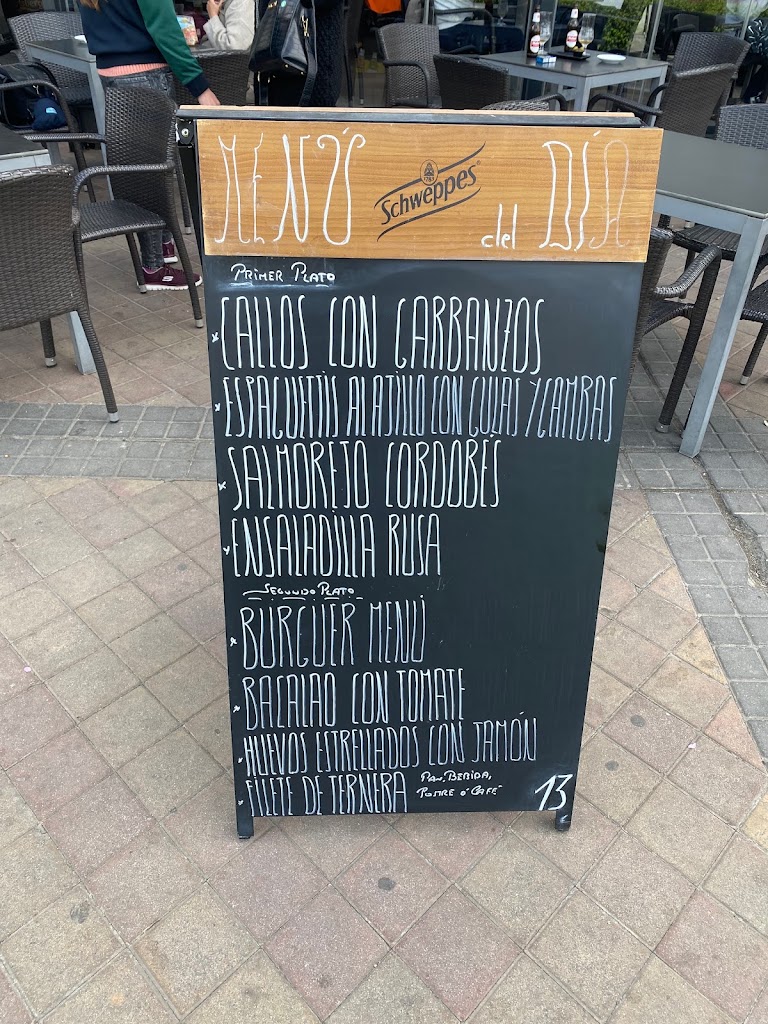 MENÚ del DÍA
1783
Schweppes®
PRIMER PLATO
CALLOS CON GARBANZOS
ESPAGUETIS AL AJILLO CON GULAS Y GAMBAS
SALMOREJO CORDOBÉS
ENSALADILLA RUSA
SEGUNDO PLATO
BURGUER MENÚ
BACALAO CON TOMATE
HUEVOS ESTRELLADOS CON JAMÓN
FILETE DE TERNERA
PAN, BEBIDA,
POSTRE Ó CAFÉ
13